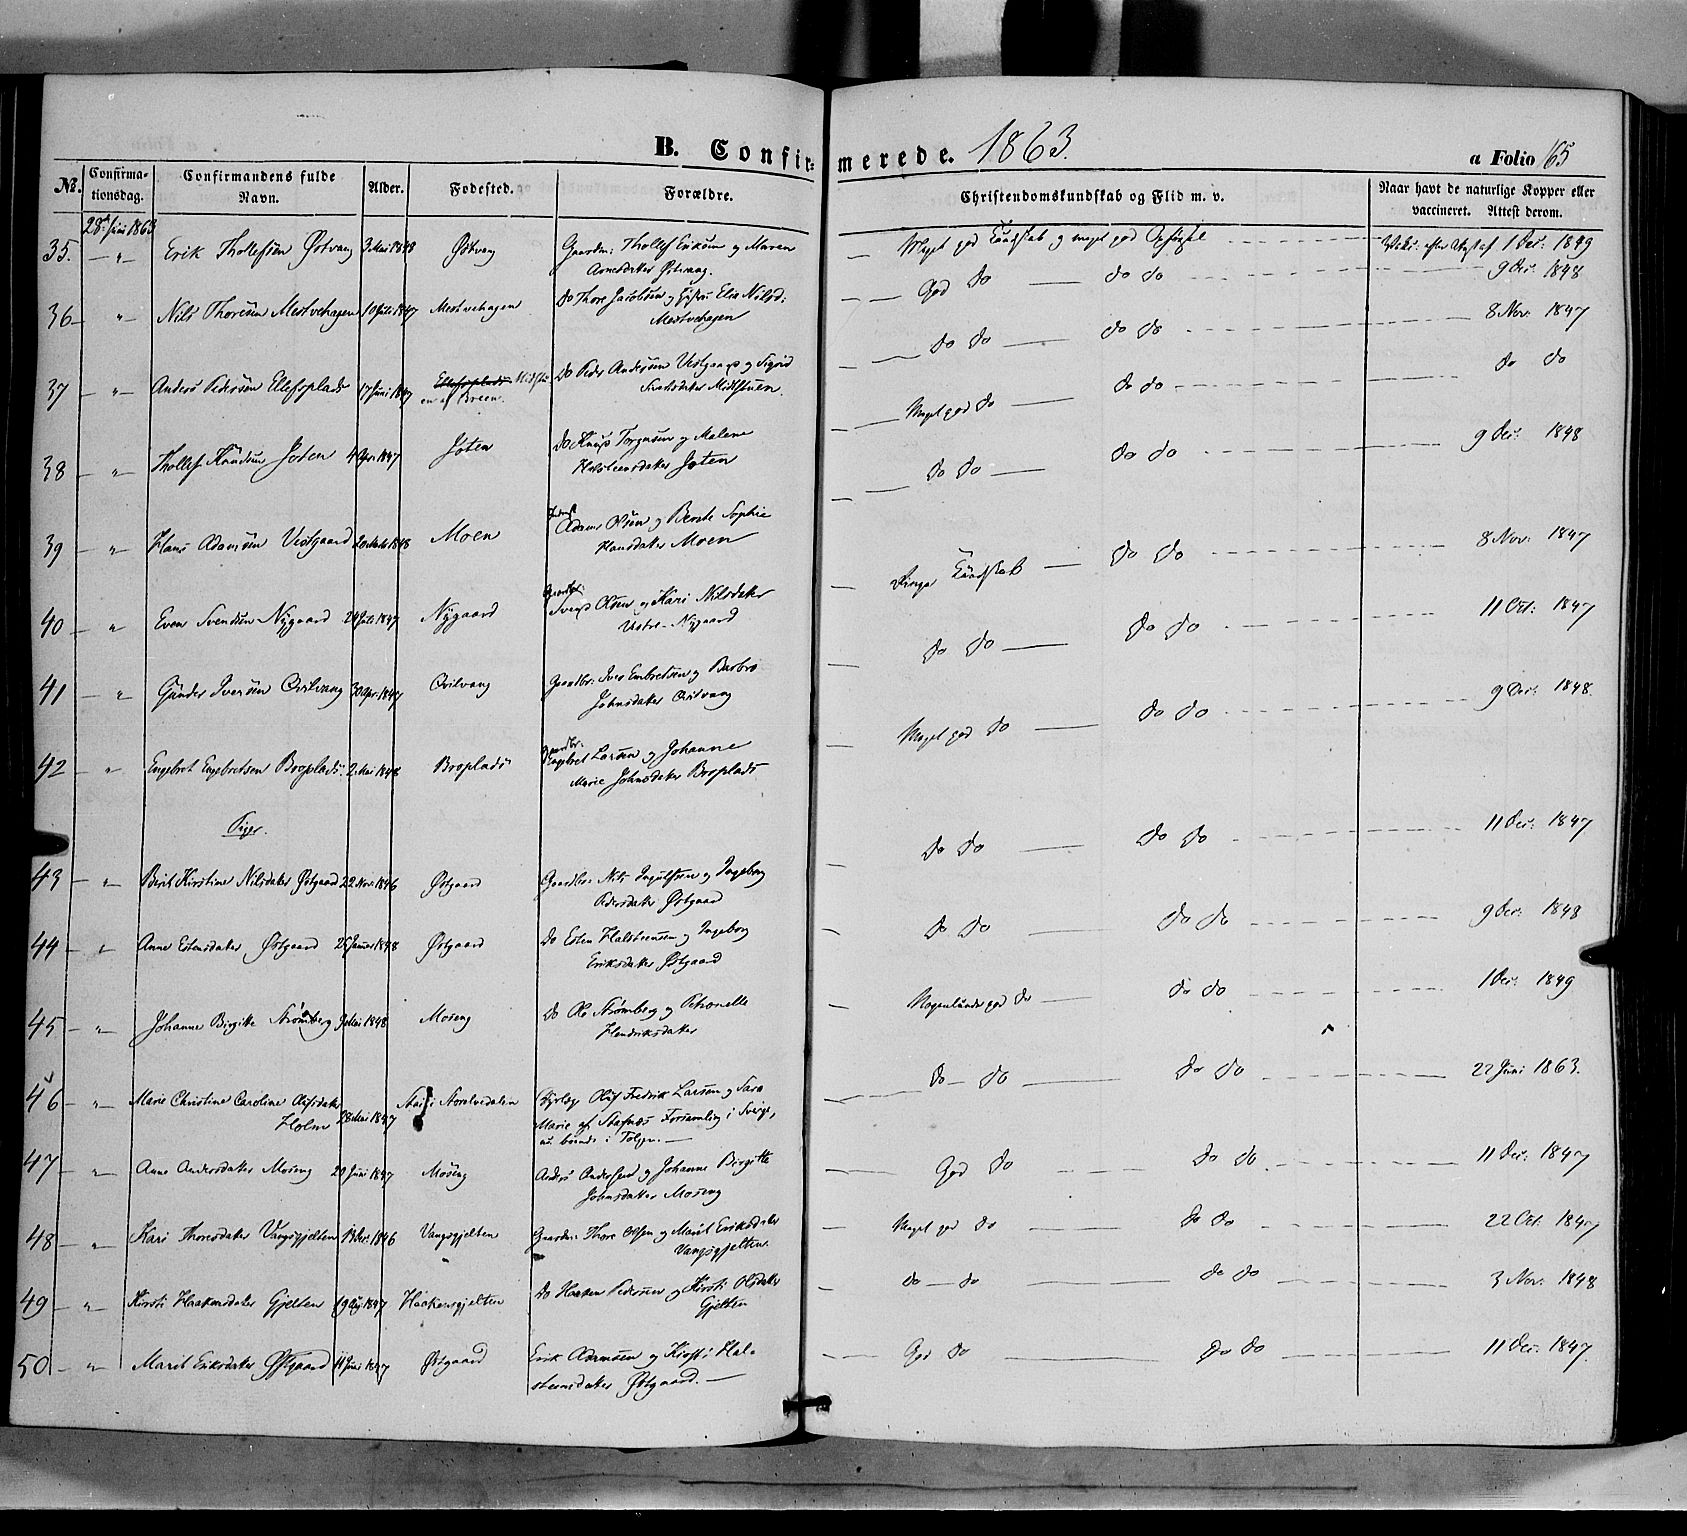 B. Confirmerede. 1863. a Folio 165
№. Confirmationsdag. Confirmandens fulde Navn. Alder. Fødested. Forældre. Christendomskundskab og Flid m. v. Naar havt de naturlige Kopper eller vaccineret. Attest derom.
28 Juni 1863
35. — " Erik Thollefsen Østvang 3 Mai 1848 Østvang Gaardm: Thollef Eriksen og Maren Meget god Kundskab og meget god Opførsel 1 Dec: 1849
Østvang.
36 — " Nils Thoresen Mestvehagen 10 Juli 1847 Mestvehagen Do Thore Jacobsen og Elie Nilsd: God Do do do 9 Dec: 1848
Mestvehagen
37 — " Anders Pedersen Ellefsplads 17 Juni 1847 Ellefsplads Do Peder Andersen Vestgaard og Sigrid Do Do do do 8 Nov: 1847
Midtstuen.
38 — " Thollef Knudsen Joten 4 Apr: 1847 Joten Do Knud Torgersen og Malene Meget god Do do do do do
Halsteensdatter Joten
39 — " Hans Adamsen Vestgaard 1848 Moen Adam Olsen og Berthe Sophie Do Do do do 9 Dec: 1848
Hansdatter Moen
40 — " Even Svendsen Nygaard 24 Juli 1847 Nygaard Svend Olsen og Kari Nilsdatter Kundskab do do 8 Nov: 1847
Nygaard
41 — " Gunder Iversen Qvilvang 30 Apr: 1847 Qvilvang Gaardbr: Iver Embretsen og Barbro Do Do do do 11 Oct: 1847
Johnsdatter Qvilvang
42 " Engebret Engebretsen Broplads. 2 Mai 1848 Broplads Gaardbr: Engebret Larsen og Johanne Meget god Do do do 9 Dec: 1848.
Marie Johnsdatter Broplads
Piger.
43 — " Berit Kirstine Nilsdatter Østgaard 22 Nov: 1846 Østgaard Gaardbr: Nils Ingulfsen og Ingeborg Do Do do do 11 Dec: 1847
Østgaard
44 — " Anne Estensdatter Østgaard 1848 Østgaard Do Esten Halsteensen og Ingeborg Do Do do do 9 Dec: 1848
Eriksdatter Østgaard
45 — " Johanne Birgitte Strømberg 3 Mai 1848 Moseng Do Ole Strømberg og Petronelle Nogenlunde god do do do 1 Dec: 1849
Hendriksdatter
46 — " Marie Christine Caroline Olufsdatter Holm 28 Mai 1847 Oluf Fredrik Larsen og Sara Do — do do do 22 Juni 1863.
Marie af Forsamling i Sverige,
47 — " Anne Andersdatter Moseng 20 Juni 1847 Moseng Anders Andersen og Johanne Birgitte God do do do 11 Dec: 1847
Johnsdatter Moseng
48 — " Kari Thoresdatter Vangsgjelten 1846 Vangsgjelten Gaardm: Thore Olsen og Marit Eriksdatter Meget god do do do 22 Oct: 1847
Vangsgjelten
49 — " Kirsti Haakensdatter Gjelten 19 Aug: 1847 Haakensgjelten Do Haaken Pedersen og Kirsti Olsdatter do — do do do 3 Nov: 1848
Gjelten
50 — " Marit Eriksdatter Østgaard 11 Juni 1847 Østgaard Erik Adamsen og Kirsti Hal- God do do do 11 Dec: 1847.
steensdatter Østgaard. —